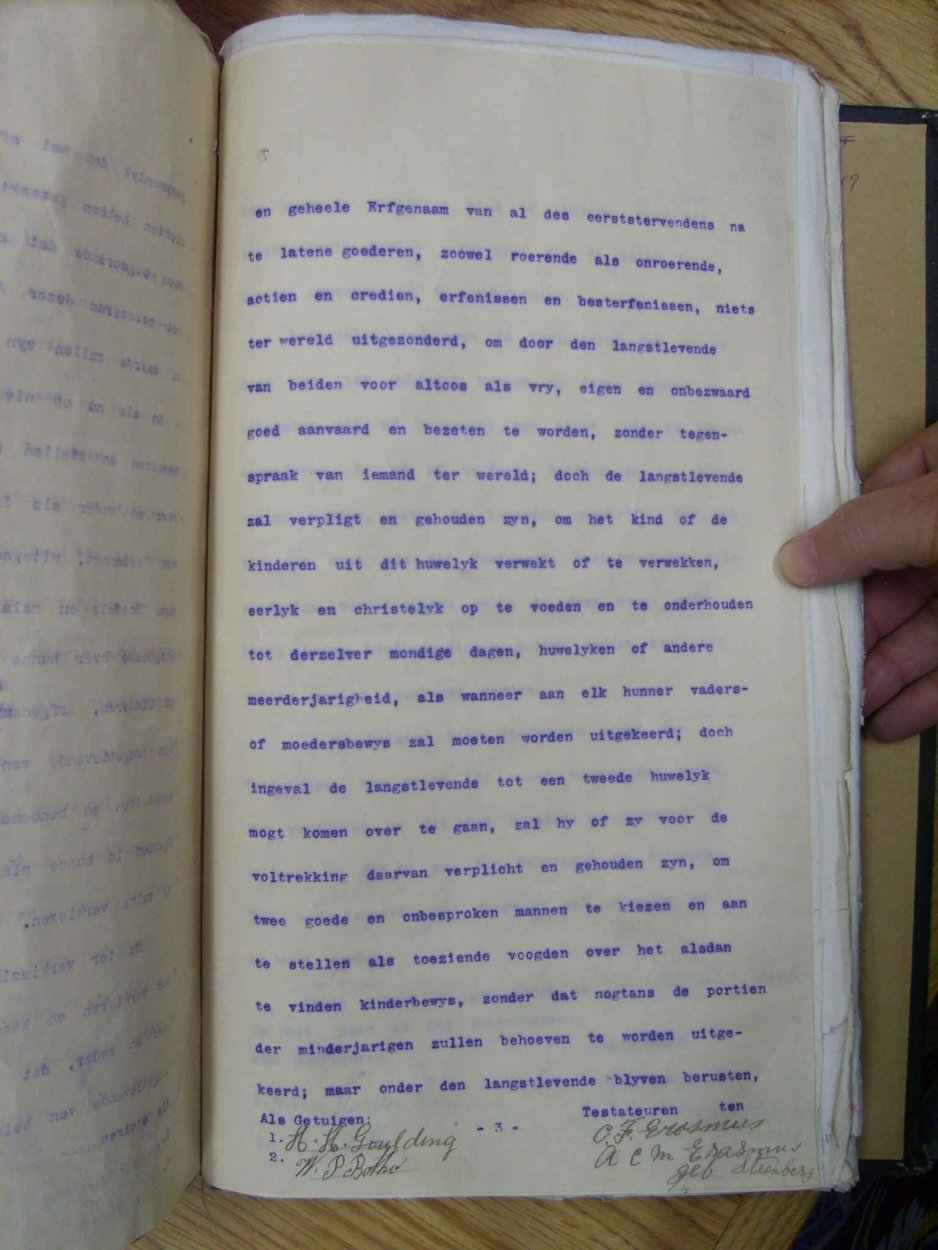 en geheele Erfgenaam van al des eerststervendens na
te latene goederen, zoowel roerende als onroerende,
actien en credien, erfenissen en besterfenissen, niets
ter wereld uitgezonderd, om door den langstlevende
van beiden voor altoos als vry, eigen en onbezwaard
goed aanvaard en bezeten te worden, zonder tegen-
spraak van iemand ter wereld; doch de langstlevende
zal verpligt en gehouden zyn, om het kind of de
kinderen uit dit huwelyk verwekt of te verwekken,
eerlyk en christelyk op te voeden en te onderhouden
tot derzelver mondige dagen, huwelyken of andere
meerderjarigheid, als wanneer aan elk hunner vaders-
of moedersbewys zal moeten worden uitgekeerd; doch
ingeval de langstlevende tot een tweede huwelyk
mogt komen over te gaan, zal hy of zy voor de
voltrekking daarvan verplicht en gehouden zyn, om
twee goede en onbesproken mannen te kiezen en aan
te stellen als toeziende voogden over het alsdan
te vinden kinderbewys, zonder dat nogtans de portien
der minderjarigen zullen behoeven te worden uitge-
keerd; maar onder den langstlevende blyven berusten,
Als Getuigen: Testateuren ten
- 3 -
1. H. H. Goulding C. F. Erasmus
2. W. P. Botha A C M Erasmus
geb Steenberg